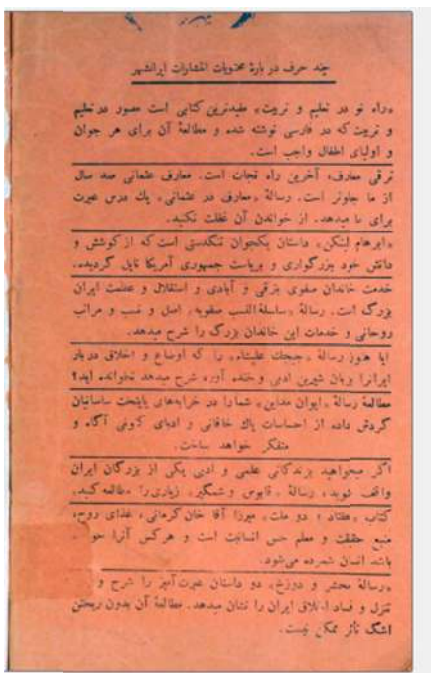 چند حرف در بارهٔ محتویات انتشارات ایرانشهر
«راه نو در تعلیم و تربیت» مفیدترین کتابی است مصور در تعلیم
و تربیت که در فارسی نوشته شده و مطالعهٔ آن برای هر جوان
و اولیای اطفال واجب است.
ترقی معارف، آخرین راه نجات است. معارف عثمانی صد سال
از ما جلوتر است. رسالهٔ «معارف در عثمانی» یك درس عبرت
برای ما میدهد. از خواندن آن غفلت نکنید.
«ابرهام لینکن» داستان یکجوان تنگدستی است که از کوشش و
دانش خود بزرگواری و بریاست جمهوری آمریکا نایل گردیده.
خدمت خاندان صفوی بترقی و آبادی و استقلال و عظمت ایران
بزرگ است. رسالهٔ «سلسلةالنسب صفویه» اصل و نسب و مراتب
روحانی و خدمات این خاندان بزرگ را شرح میدهد.
آیا هنوز رسالهٔ «جیجك علیشاه» را که اوضاع و اخلاق دربار
ایرانرا بزبان شیرین ادبی و خنده آور شرح میدهد نخوانده اید؟
مطالعهٔ رسالهٔ «ایوان مداین» شما را در خرابه‌های پایتخت ساسانیان
گردش داده از احساسات پاك خاقانی و ادبای کنونی آگاه و
متفکر خواهد ساخت.
اگر میخواهید بزندگانی علمی و ادبی یکی از بزرگان ایران
واقف شوید، رسالهٔ «قابوس وشمگیر» زیاری را مطالعه کنید.
کتاب «هفتاد و دو ملت» میرزا آقا خان کرمانی، غذای روح،
منبع حقیقت و معلم حس انسانیت است و هر کس آنرا
باشد انسان شمرده می‌شود.
«رسالهٔ محشر و دوزخ» دو داستان عبرت آمیز را شرح و
تنزل و فساد اخلاق ایران را نشان میدهد. مطالعهٔ آن بدون ریختن
اشک تأثر ممکن نیست.